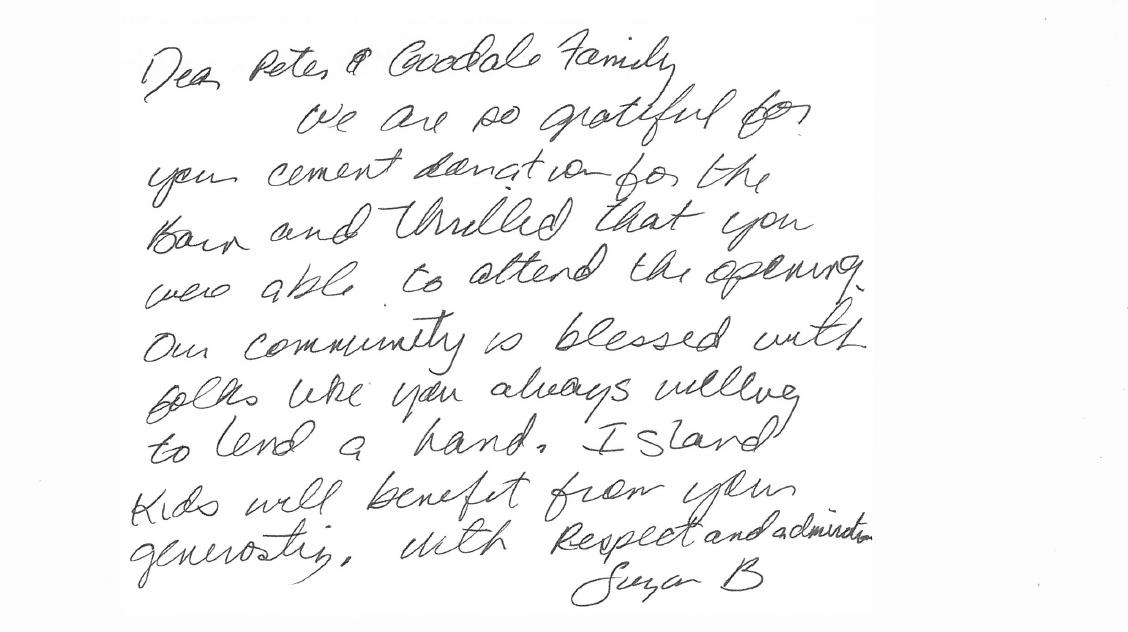 Dear Peter & Goodale Family
We are so grateful for
your cement donation for the
Barn and Thrilled that you
were able to attend the opening.
Our community is blessed with
folks like you always willing
to lend a hand. Island
Kids will benefit from your
generostiy. with Respect and admiration
Suzan B